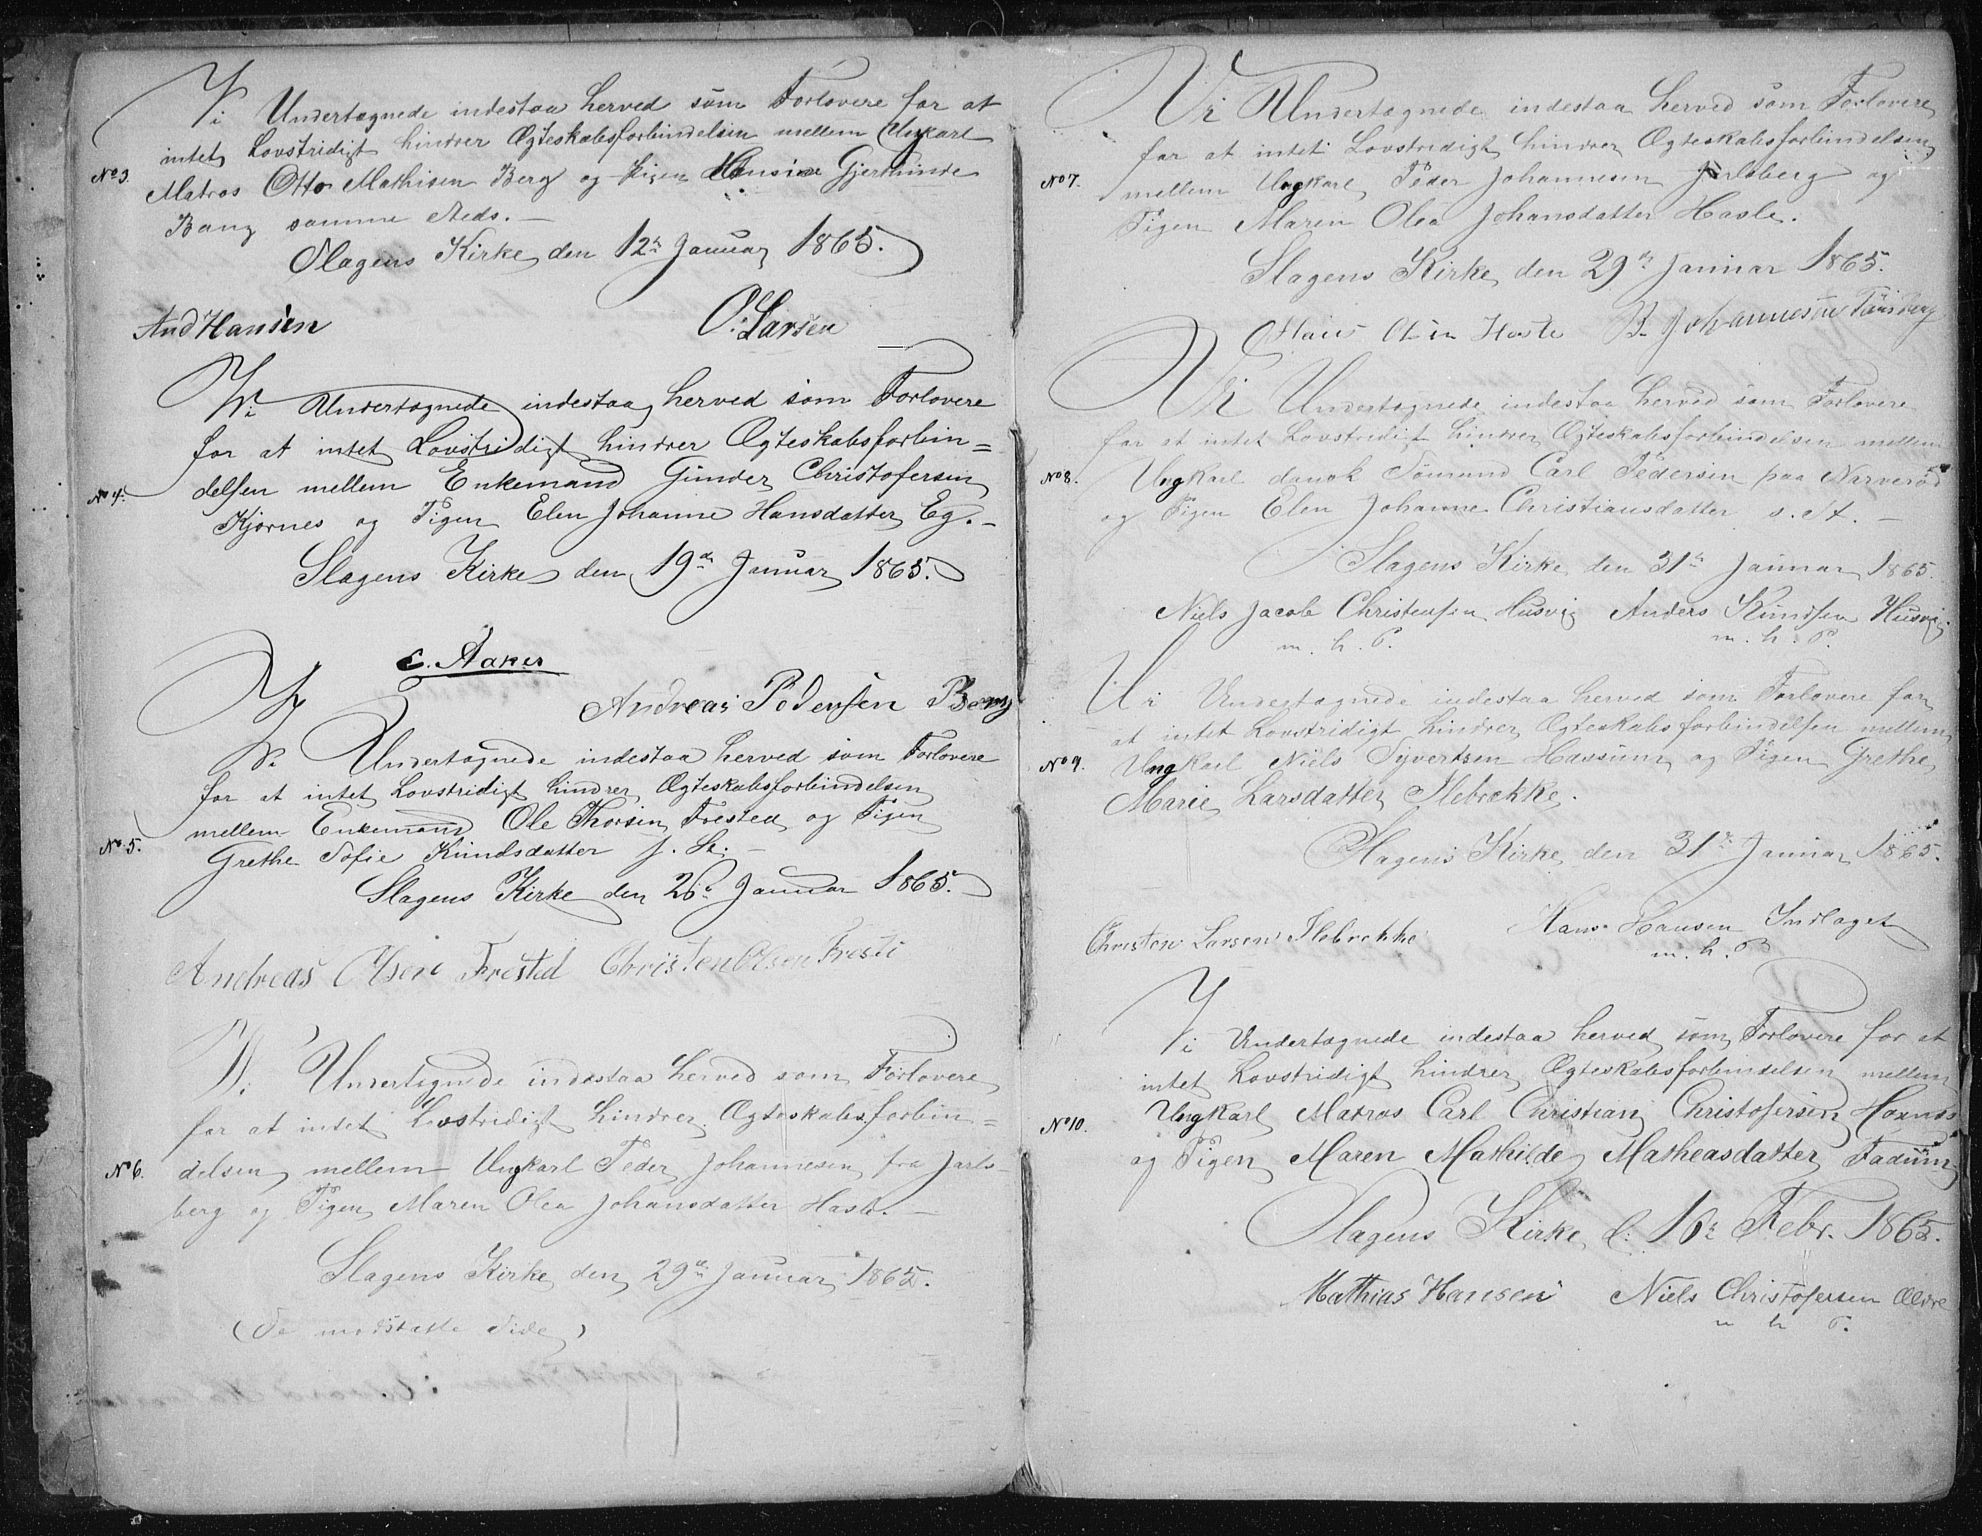 Vi Undertegnede indestaa herved som Forlovere for at
intet Lovstridigt hindrer Ægteskabsforbindelsen mellem Ungkarl
No 3.
Matros Otto Mathisen Berg og Pigen Hansine Gjerthinde
Bang samme Steds.—
Slagens Kirke den 12te Januar 1865.
And Hansen O. Larsen
Vi Undertegnede indestaa herved som Forlovere
for at intet Lovstridigt hindrer Ægteskabsforbin=
No 4.
delsen mellem Enkemand Gunder Christofersen
Kjørnes og Pigen Elen Johanne Hansdatter Eg.—
Slagens Kirke den 19de Januar 1865.
E. Aaker
Andreas Pedersen Berg
Vi Undertegnede indestaa herved som Forlovere
for at intet Lovstridigt hindrer Ægteskabsforbindelsen
mellem Enkemand Ole Thorsen Frested og Pigen
No 5.
Grethe Sofie Knudsdatter s. St.—
Slagens Kirke den 26de Januar 1865.
Andreas Olsen Frested Christen Olsen Freste
Vi Undertegnede indestaa herved som Forlovere
for at intet Lovstridigt hindrer Ægteskabsforbin=
No 6.
delsen mellem Ungkarl Peder Johannesen fra Jarls-
berg og Pigen Maren Olea Johansdatter Hasle.—
Slagens Kirke den 29de Januar 1865.
(Se modstatte Side)
Vi Undertegnede indestaa herved som Forlovere
for at intet Lovstridigt hindrer Ægteskabsforbindelsen
No 7.
mellem Ungkarl Peder Johannesen Jarlsberg og
Pigen Maren Olea Johansdatter Hasle.
Slagens Kirke den 29de Januar 1865.
Hans Olsen Hasle B. Johannesen Tønsberg
Vi Undertegnede indestaa herved som Forlovere
for at intet Lovstridigt hindrer Ægteskabsforbindelsen mellem
No 8.
Ungkarl dansk Sømand Carl Pedersen paa Narverød
og Pigen Elen Johanne Christiansdatter s. St.—
Slagens Kirke den 31te Januar 1865.
Niels Jacob Christensen Husvig Anders Knudsen Husvig
m. h. P. m. h. P.
Vi Undertegnede indestaa herved som Forlovere for
at intet Lovstridigt hindrer Ægteskabsforbindelsen mellem
No 9.
Ungkarl Niels Syvertsen Hassum og Pigen Grethe
Marie Larsdatter Ilebrekke.
Slagens Kirke den 31te Januar 1865.
Christen Larsen Ilebrekke Hans Hansen Indlaget
m. h. P
Vi Undertegnede indestaa herved som Forlovere for at
intet Lovstridigt hindrer Ægteskabsforbindelsen mellem
No 10.
Ungkarl Matros Carl Christian Christofersen Haxnæs
og Pigen Maren Mathilde Matheasdatter Fadum
Slagens Kirke d: 16de Febr. 1865.
Mathias Hansen Niels Christofersen
m h P.